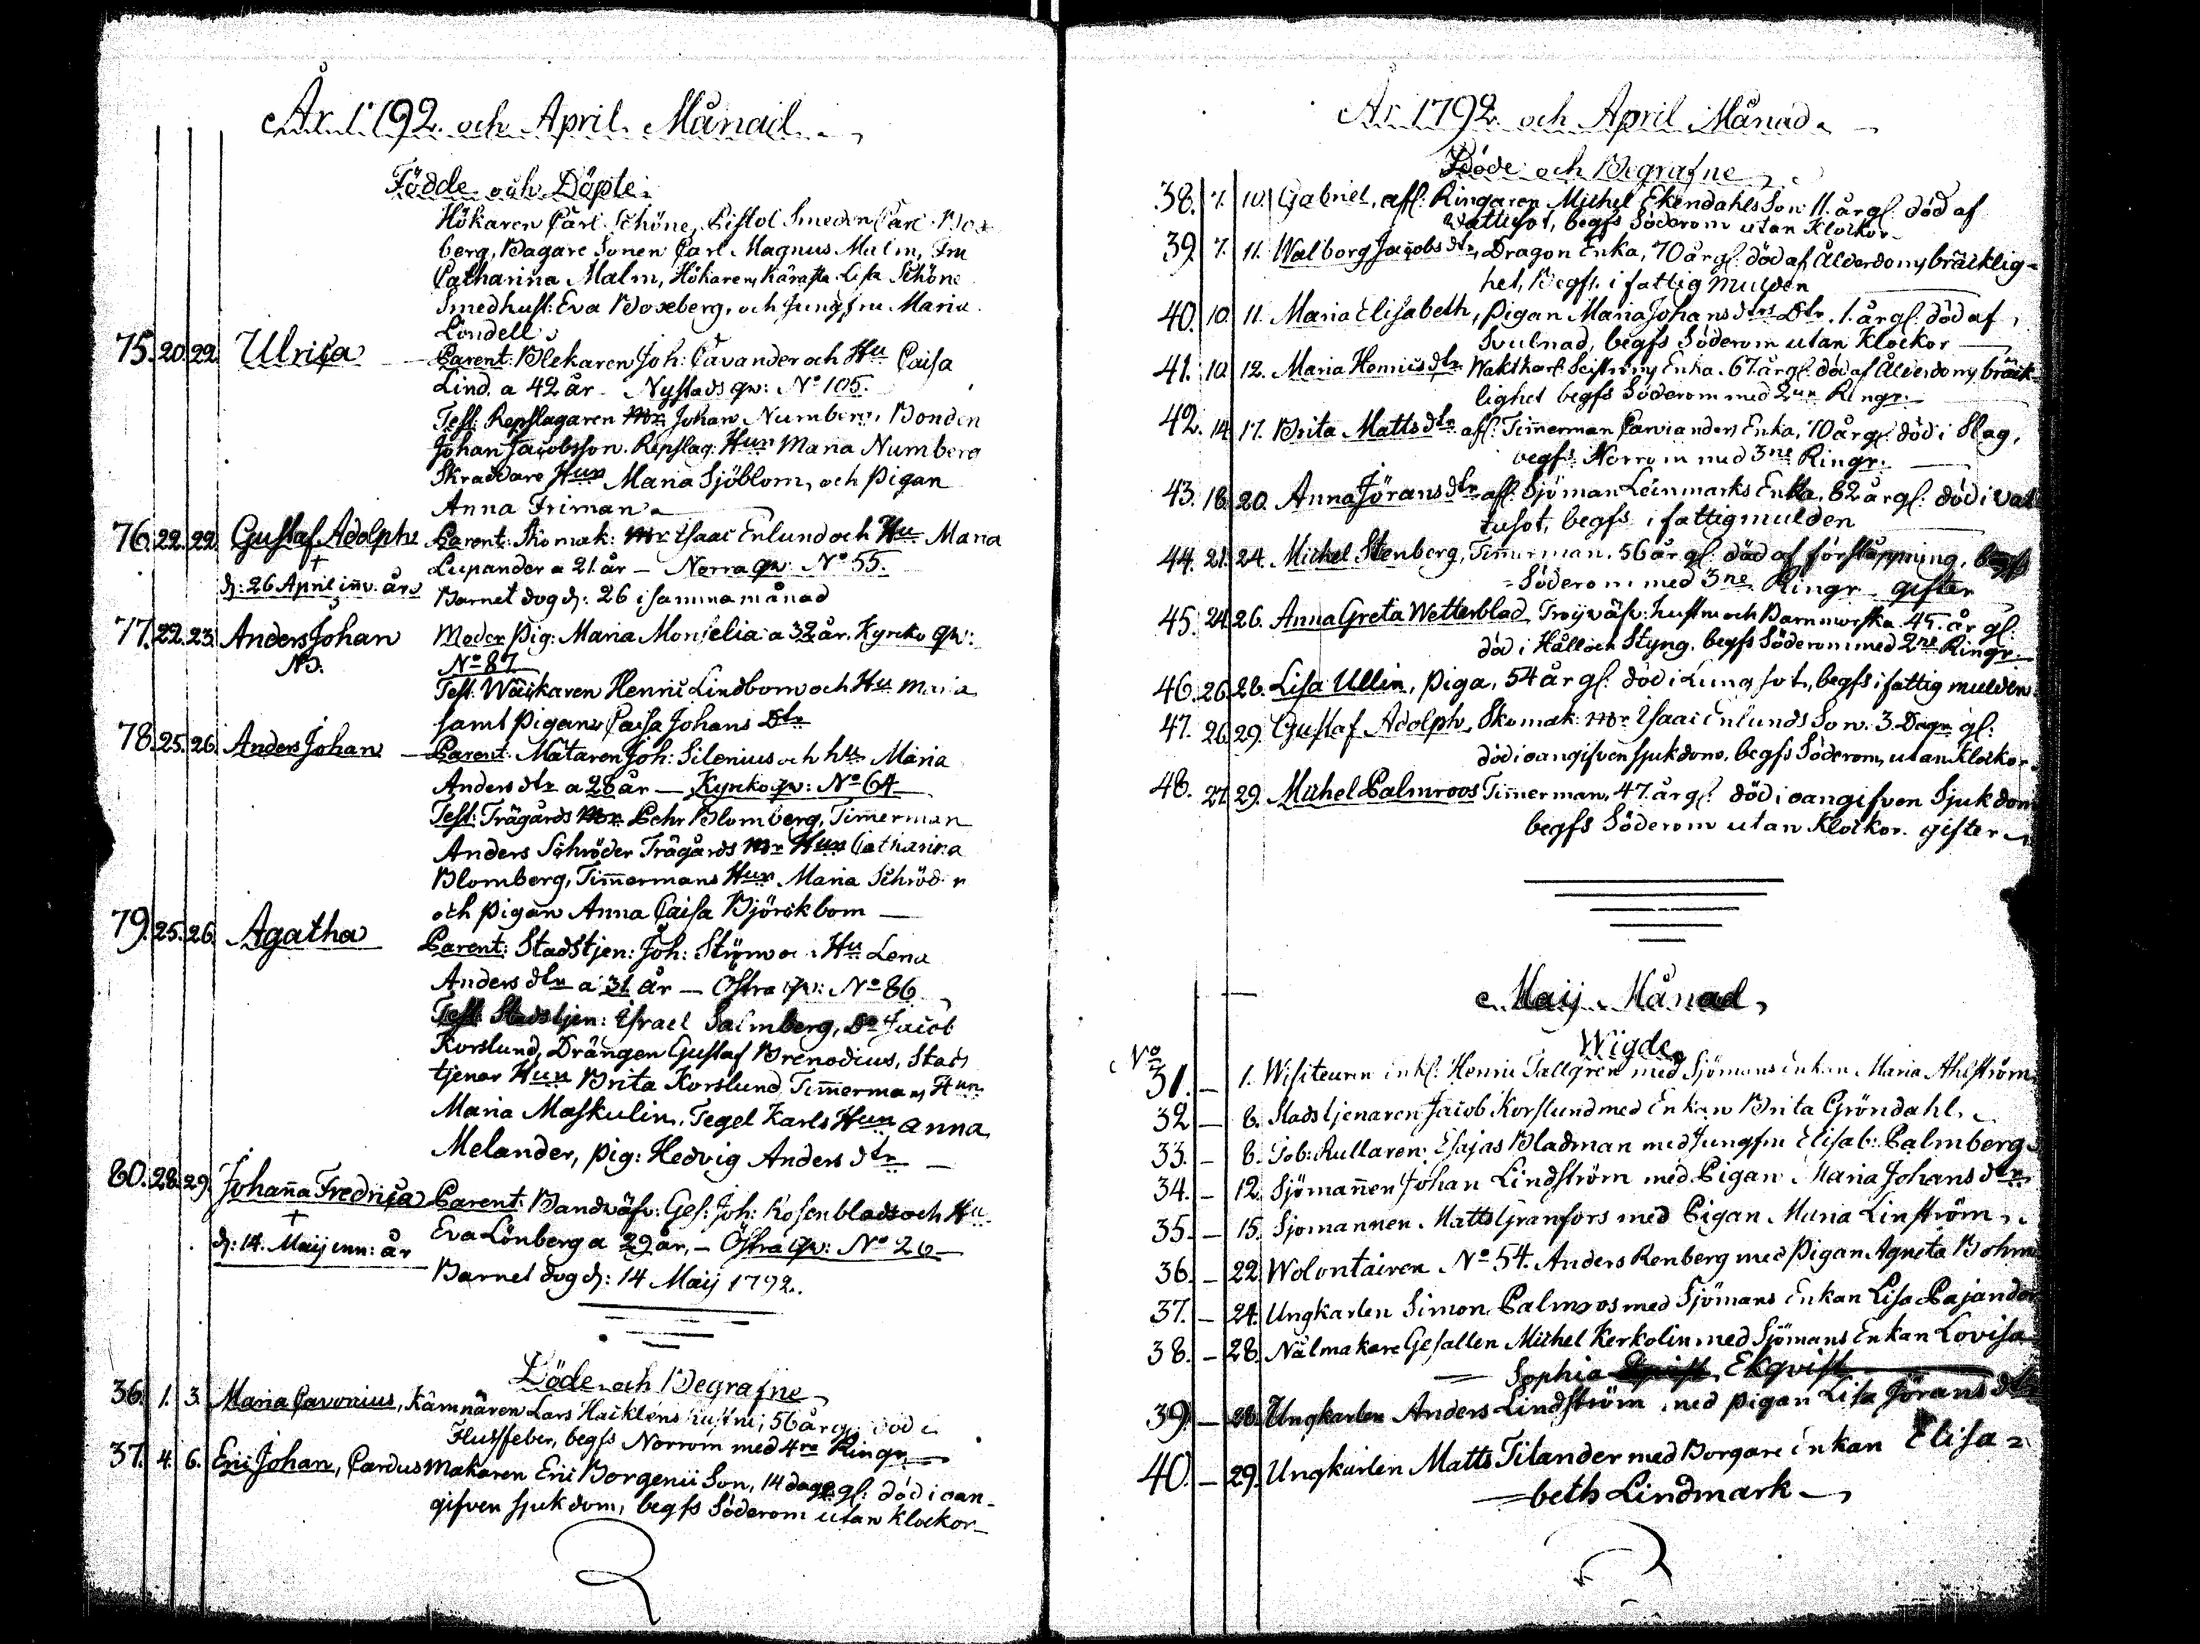 År 1792. och April. Månad.
Födde och Döpte.
Hökaren Carl Schöne, Pistol Smeden Carl Box
berg, Bagare Sonen Carl Magnus Malm, Fru
Catharina Malm, Hökarens käraste Lisa Schöne
Smedhust: Eva Boxeberg, och Jungfru Maria
Londell.
75. 20. 22. Ulrica Parent: Blekaren Joh: Cavander och Hu Caisa
Lind. a 42 år. Nystads qv: No 105.
Test: Repslagaren Mr Johan Numberg, Bonden
Johan Jacobsson. Repslag: Hun Maria Numberg
Skräddare Hun Maria Sjöblom, och Pigan
Anna Friman.
76. 22. 22. Gustaf Adolph Parent: Skomak: Mr Isaac Enlund och Hu Maria
† Lupander a 21 år — Norra qv: No 55.
d: 26 April inv. år Barnet dog d: 26 i samma månad
77. 22. 23. Anders Johan Moder Pig: Maria Monselia a 32 år. Kyrko qv:
No. No 87
Test: Wäckaren Henric Lindbom och Hu Maria
samt Pigan Caisa Johans Dtr
78. 25. 26. Anders Johan — Parent: Mätaren Joh: Silenius och hu Maria
Anders dtr a 28 år — Kyrko qv: No 64
Test: Trägårds Mr Pehr Blomberg, Timerman
Anders Schröder Trägårds Mr Hun Catharina
Blomberg, Timermans Hun Maria Schröder
och Pigan Anna Caisa Björckbom —
79. 25. 26. Agatha Parent: Stadstjen: Joh: och Hu Lena
Anders dtr a 31 år — Östra qv: No 86
Test: Stadstjen: Israel Salmberg, Do Jacob
Korslund, Drängen Gustaf Brenodius, Stads
tjenar Hun Brita Korslund, Timermans Hun
Maria Maskulin, Tegel Karls Hun Anna
Melander, Pig: Hedvig Anders dtr —
80. 28. 29. Johana Fredrica Parent: Bandväfv: Ges: Joh: Rosenblad och Hu
† Eva Lönberg a 29 år, — Östra qv: No 26 —
d: 14. Maij inn: år Barnet dog d: 14 Maij 1792.
Döde och Begrafne
36. 1. 3. Maria Cavonius, Kämnären Lars Hacklens hustru, 56 år gl: död i
Flussfeber, begfs Norrom med 4ra Ringr.
37. 4. 6. Eric Johan, Cardusmakaren Eric Borgenii Son, 14 dagr gl: död i oan-
gifven sjukdom, begfs Söderom utan klockor
År 1792. och April Månad.
Döde och Begrafne
38. 7. 10. Gabriel, afl: Ringaren Michel Ekendahls Son 11. år gl: död af
Wattusot, begfs Söderom utan Klockor
39. 7. 11. Walborg Jacobs dtr, Dragon Enka, 70 år gl: död af Ålderdoms bräcklig-
het, Begfs. i fattig mulden
40. 10. 11. Maria Elisabeth, Pigan Maria Johans dtrs Dtr. 1. år gl: död af
Svulnad, begfs Söderom utan Klockor
41. 10. 12. Maria Henrics dtr Waktkarl Enka. 67 år gl. död af Ålderdoms bräck-
lighet begfs Söderom med 2ne Ringr.
42. 14. 17. Brita Matts dtr afl: Timerman Cavianders Enka, 70 år gl: död i Slag,
begfs Norrom med 3ne Ringr.
43. 18. 20. Anna Jörans dtr afl: Sjöman Leinmarks Enka, 82 år gl: död i Vat
tusot, begfs i fattigmulden
44. 21. 24. Michel Stenberg, Timerman. 56 år gl: död af förstäppning, begfs
Söderom med 3ne Ringr gifter
45. 24. 26. Anna Greta Wetterblad Tröjväfv: hustru och Barnmorska 45. år gl:
död i Håll och Styng. begfs Söderom med 2ne Ringr.
46. 26. 28. Lisa Ullin, Piga, 54 år gl: död i Lungsot, begfs i fattig mulden
47. 26. 29. Gustaf Adolph, Skomak: Mr Isaac Enlunds Son. 3. Dagr gl:
död i oangifven sjukdom. begfs Söderom, utan Klockor.
48. 27. 29. Michel Palmroos Timerman, 47. år gl: död i oangifven Sjukdom
begfs Söderom utan Klockor. gifter
Maij Månad
Wigde
No
31. — 1. Wisiteuren Enkl: Henric Tallgren med Sjömans enkan Maria Ahlström
32 — 8. Stadstjenaren Jacob Korslund med Enkan Brita Gröndahl.
33. — 8. Tob: Rullaren: Esajas Bladman med Jungfru Elisab: Palmberg
34. — 12. Sjömannen Johan Lindström med Pigan Maria Johans dtr
35 — 15. Sjomannen Matts Granfors med Pigan Maria Linström
36. — 22 Wolontairen No 54. Anders Renberg med Pigan Agneta Bohm
37. — 24. Ungkarlen Simon Palmroos med Sjömans Enkan Lisa Pajander
38. — 28. Nålmakare Gesällen Michel Kerkolin med Sjömans Enkan Lovisa
Sophia Ekqvist
39. — 28. Ungkarlen Anders Lindström med pigan Lisa Jörans dtr
40. — 29. Ungkarlen Matts Tilander med Borgare enkan Elisa
beth Lindmark